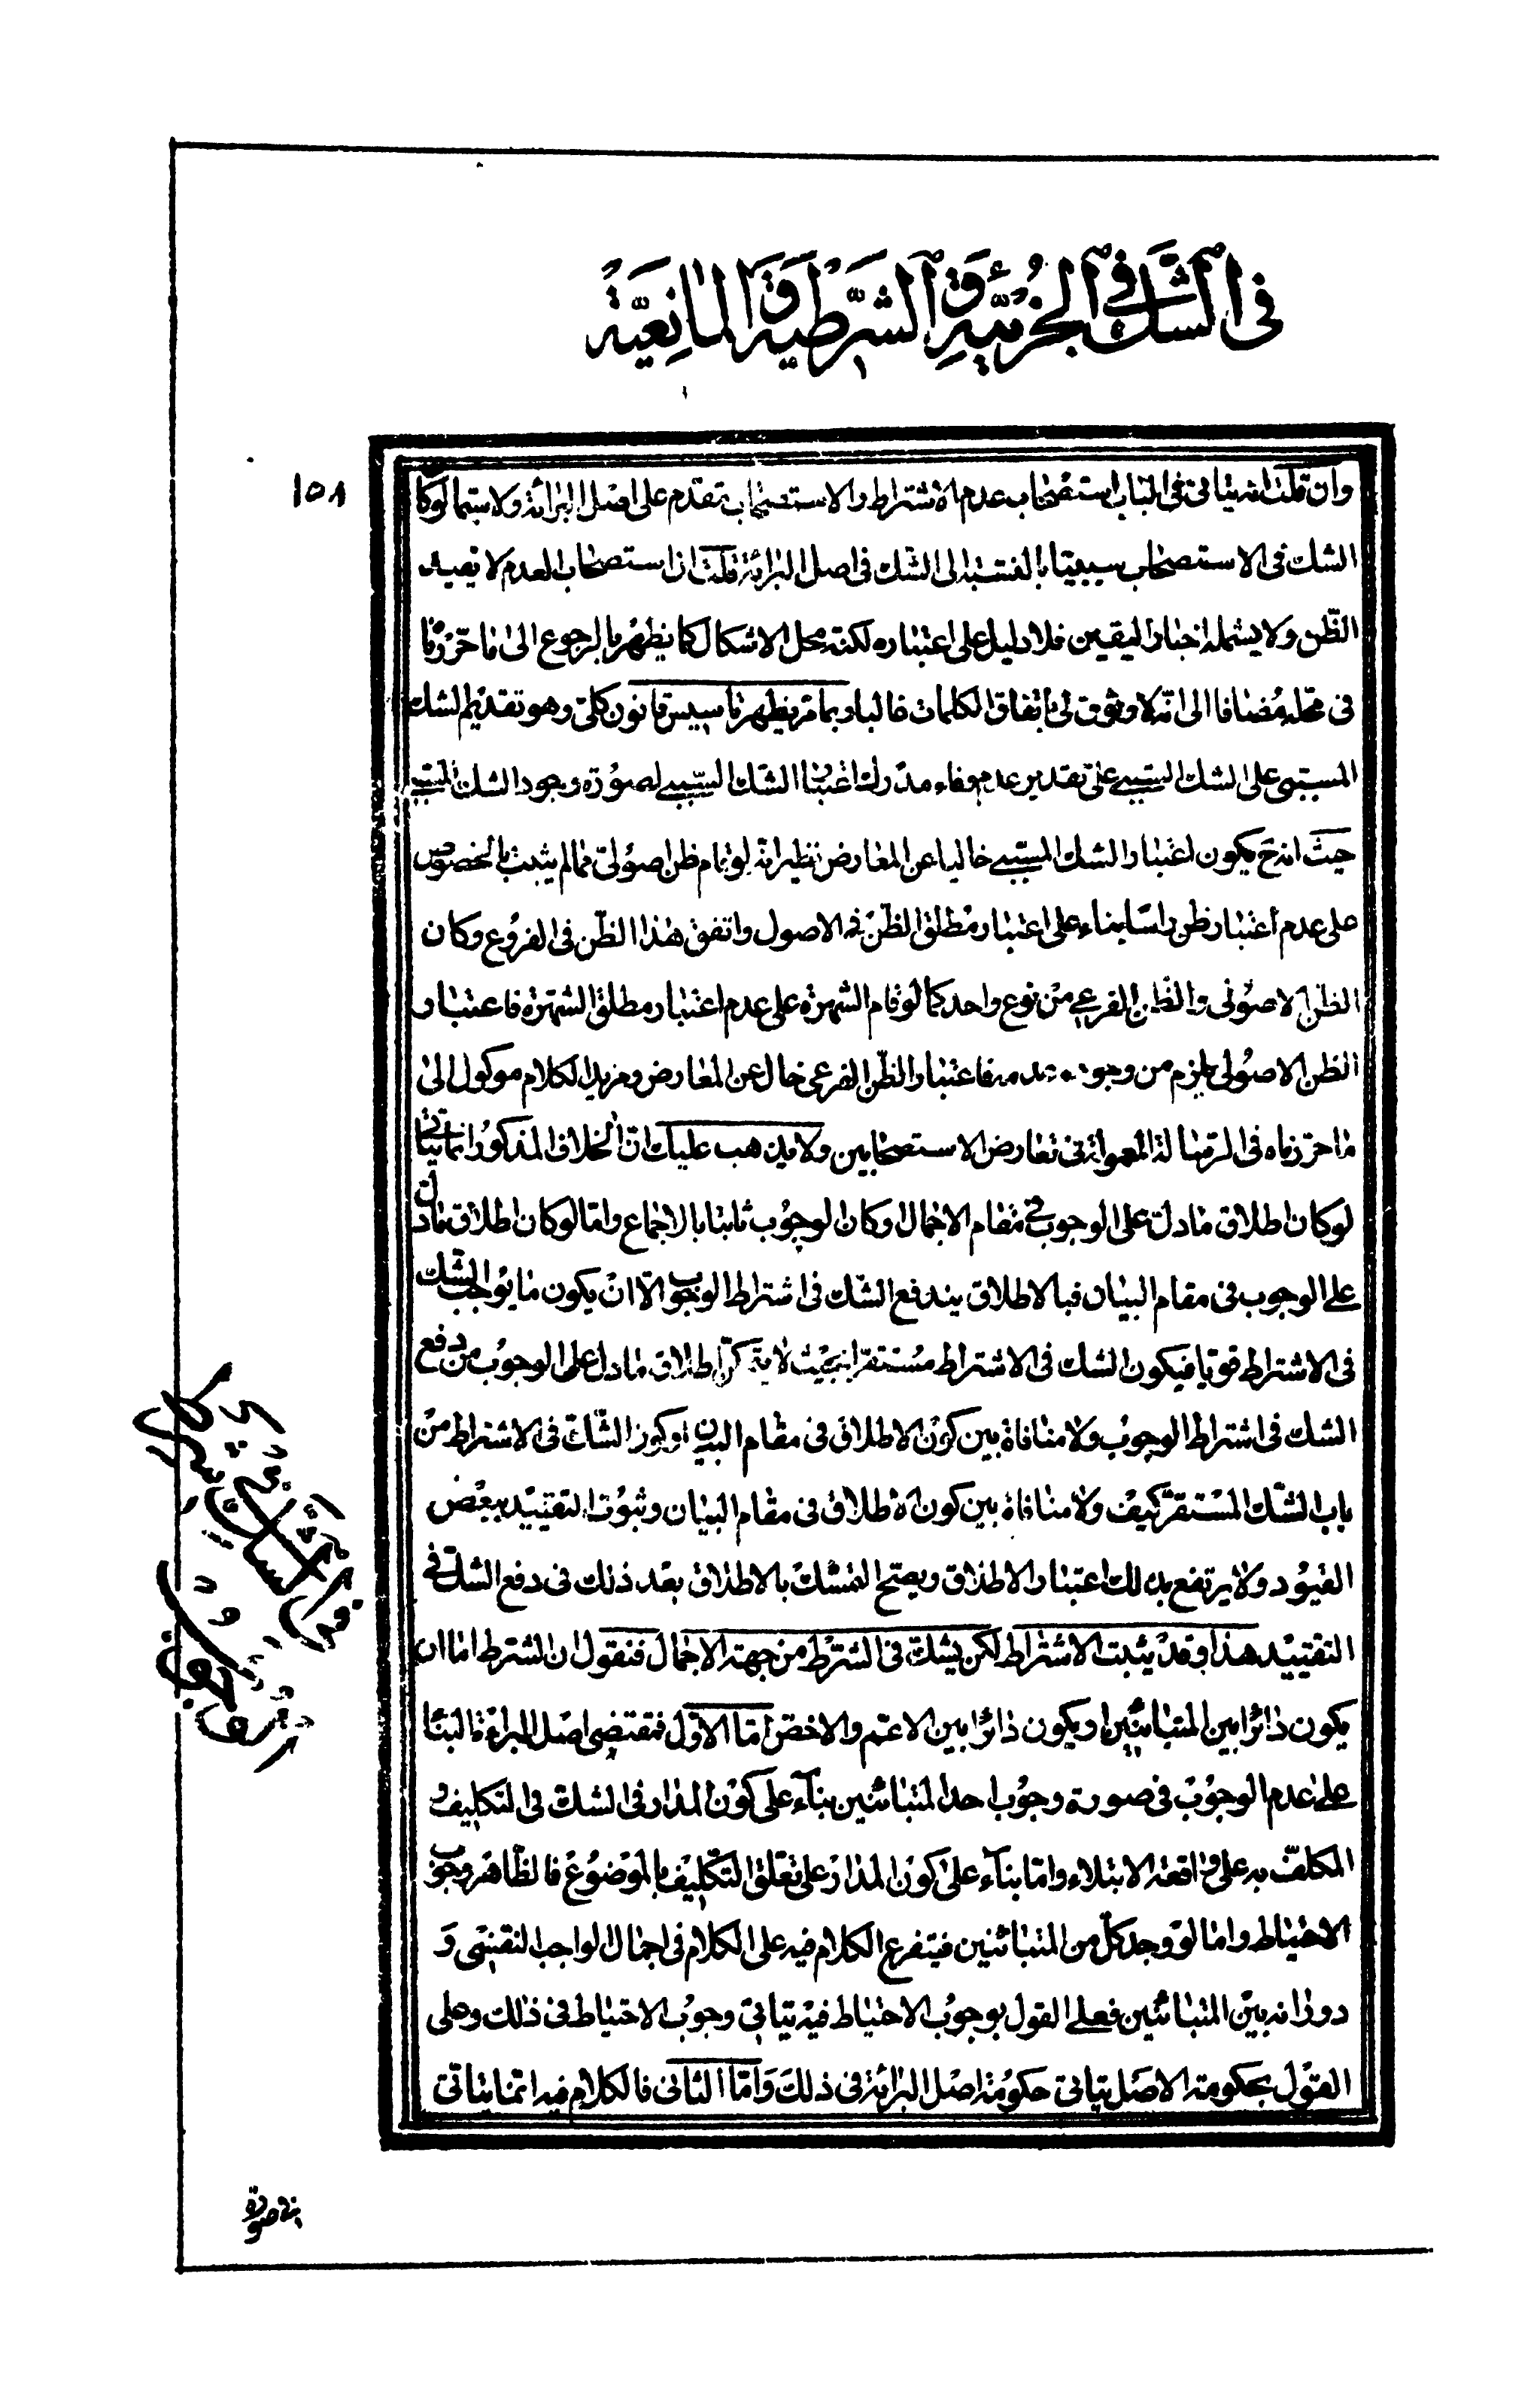 في الشك في الجزئية و الشرطية و المانعية
١٥٨
وان قلت انه يتاتى فى الباب استصحاب عدم الاشتراط والاستصحاب يتقدم على اصل البرائة ولا سيما لوكا
الشك فى الاستصحاب سببيا بالنسبة الى الشك فى اصل البرائة قلت ان استصحاب العدم لا يفيد
الظن ولا يشمله اخبار اليقين فلا دليل على اعتباره لكنه محل الاشكال كما يظهر بالرجوع الى ما حررنا
فى محله مضافا الى انه لا وثوق لى باتفاق الكلمات غالبا وبما مر يظهر تاسيس قانون كلى وهو تقديم الشك
المسببى على الشك السببى على تقدير عدم وفاء مدرك اعتبار الشك السببى لصورة وجود الشك المسببى
حيث انه ح يكون اعتبار الشك المسببى خاليا عن المعارض نظير انه لو قام ظن اصولى مما لم يثبت بالخصوص
على عدم اعتبار ظن راسا بناء على اعتبار مطلق الظن فى الاصول واتفق هذا الظن فى الفروع وكان
الظن الاصولى والظن الفرعى من نوع واحد كما لو قام الشهرة على عدم اعتبار مطلق الشهرة فاعتبار
الظن الاصولى يلزم من وجوده عدمه فاعتبار الظن الفرعى خال عن المعارض ومزيد الكلام موكول الى
ما حررناه فى الرسالة المعمولة فى تعارض الاستصحابين ولا يذهب عليك ان الخلاف المذكور انما يتاتى
لو كان اطلاق ما دل على الوجوب فى مقام الاجمال او كان الوجوب ثابتا بالاجماع واما لو كان اطلاق ما دل
على الوجوب فى مقام البيان فبالاطلاق يندفع الشك فى اشتراط الوجوب الا ان يكون ما يوجب الشك
فى الاشتراط قويا فيكون الشك فى الاشتراط مستقرا بحيث لا يتمكن اطلاق ما دل على الوجوب من دفع
الشك فى اشتراط الوجوب ولا منافاة بين كون الاطلاق فى مقام البيان وكون الشك فى الاشتراط من
باب الشك المستقر كيف ولا منافاة بين كون الاطلاق فى مقام البيان وثبوت التقييد ببعض
القيود ولا يرتفع بذلك اعتبار الاطلاق ويصح التمسك بالاطلاق بعد ذلك فى دفع الشك فى
التقييد هذا وقد يثبت الاشتراط لكن يشك فى الشرط من جهة الاجمال فنقول ان الشرط اما ان
يكون دائرا بين المتبائنين او يكون دائرا بين الاعم والاخص اما الاول فمقتضى اصل البراءة البنا
على عدم الوجوب فى صورة وجوب احد المتبائنين بناء على كون المدار فى الشك فى التكليف و
المكلف به على واقعة الابتلاء واما بناء على كون المدار على تعلق التكليف بالموضوع فالظاهر وجوب
الاحتياط واما لو وجد كل من المتبائنين فيتفرع الكلام فيه على الكلام فى اجمال الواجب النفسى و
دورانه بين المتبائنين فعلى القول بوجوب الاحتياط فيه يتاتى وجوب الاحتياط فى ذلك وعلى
القول بحكومة الاصل يتاتى حكومة اصل البرائة فى ذلك واما الثانى فالكلام فيه انما يتاتى
فى صورة